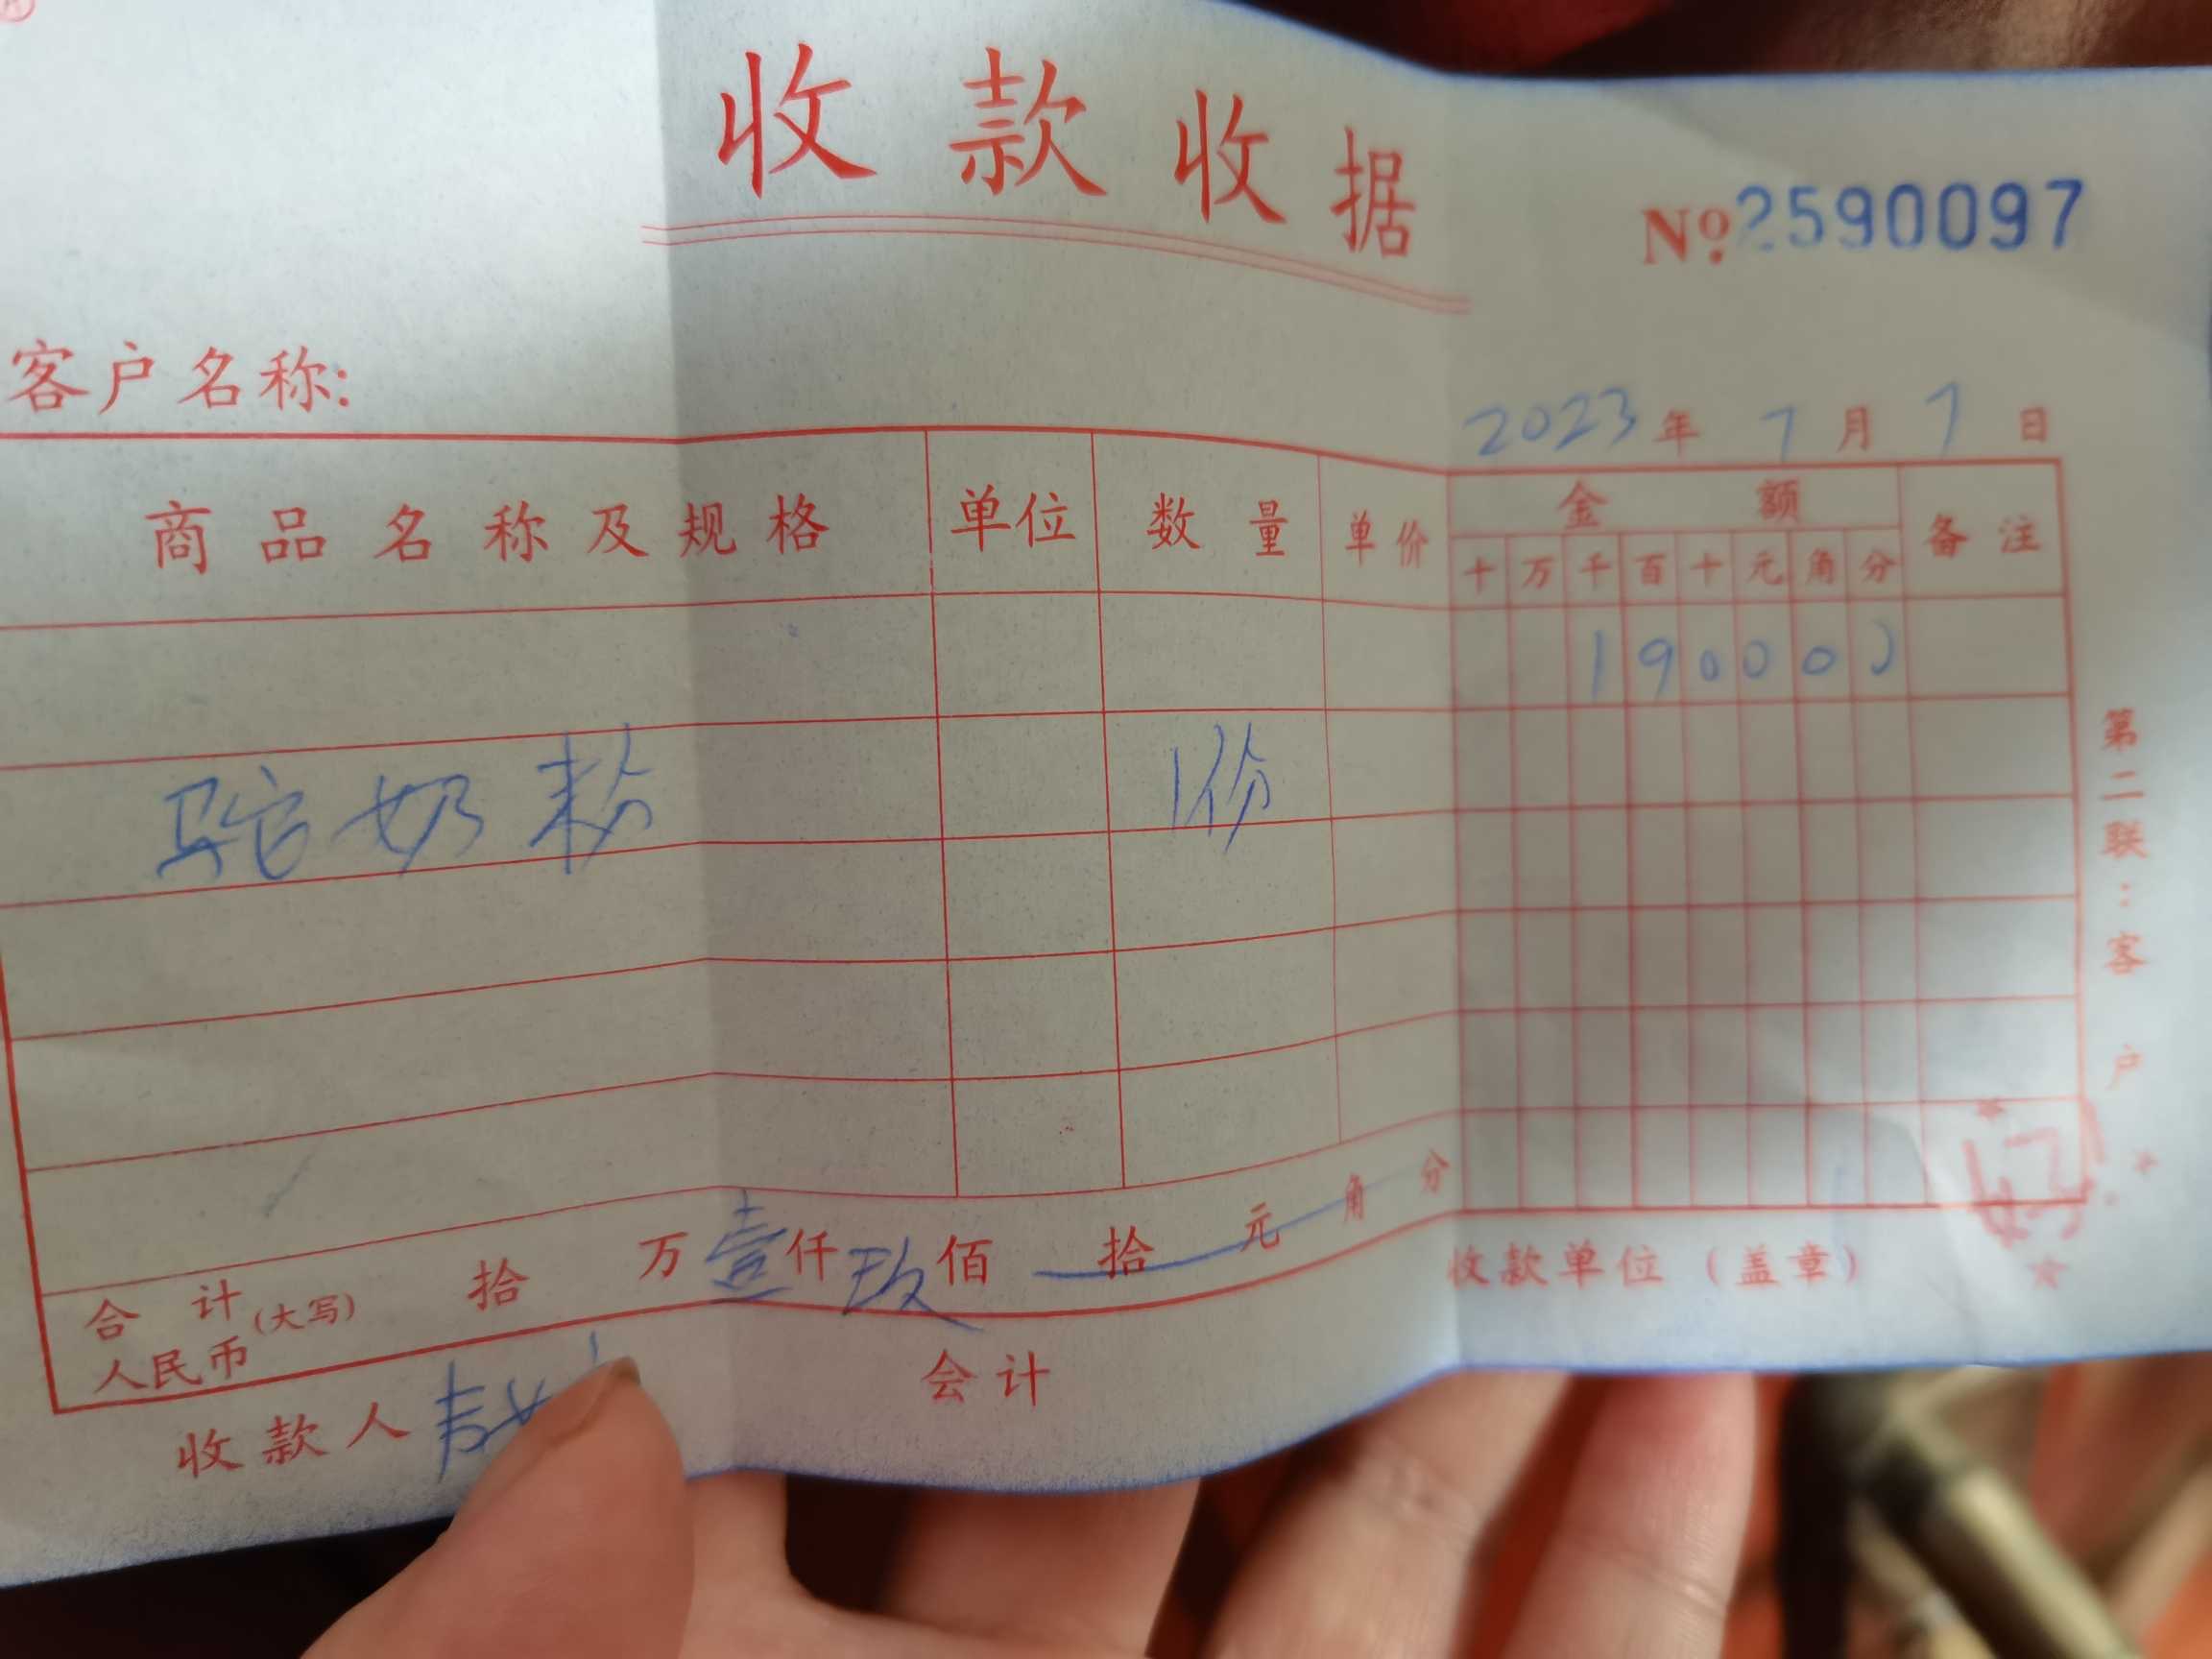 收款收据
№2590097
客户名称:
2023年7月7日
商品名称及规格 单位 数量 单价 金额 备注
十 万 千 百 十 元 角 分
1 9 0 0 0 0
驼奶粉 1份
合计(大写)人民币 拾 万 壹 仟 玖 佰 拾 元 角 分
收款单位(盖章)
收款人 会计
第二联:客户